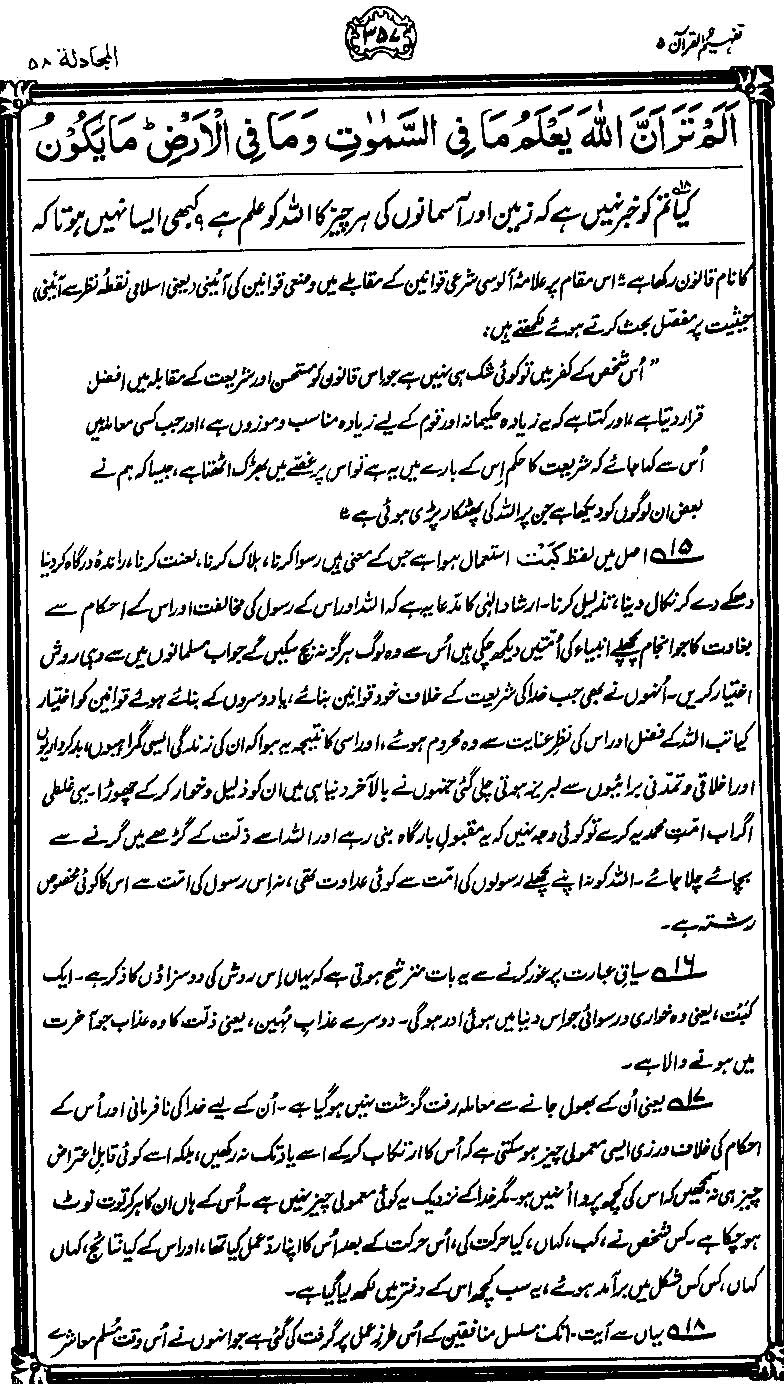 تفہیم القرآن ۵
۳۵۷
المجادلۃ ۵۸
اَلَمْ تَرَ اَنَّ اللّٰهَ يَعْلَمُ مَا فِي السَّمٰوٰتِ وَمَا فِي الْاَرْضِ ؕ مَا يَكُوْنُ
کیا تم کو خبر نہیں ہے۱۸ کہ زمین اور آسمانوں کی ہر چیز کا اللہ کو علم ہے؟ کبھی ایسا نہیں ہوتا کہ
کا نام قانون رکھا ہے“ اس مقام پر علامہ آلوسی شرعی قوانین کے مقابلے میں وضعی قوانین کی آئینی (یعنی اسلامی نقطۂ نظر سے آئینی)
حیثیت پر مفصل بحث کرتے ہوئے لکھتے ہیں:
”اُس شخص کے کفر میں تو کوئی شک ہی نہیں ہے جو اِس قانون کو مستحسن اور شریعت کے مقابلہ میں افضل
قرار دیتا ہے، اور کہتا ہے کہ یہ زیادہ حکیمانہ اور قوم کے لیے زیادہ مناسب و موزوں ہے، اور جب کسی معاملہ میں
اُس سے کہا جائے کہ شریعت کا حکم اِس کے بارے میں یہ ہے تو اس پر غصے میں بھڑک اٹھتا ہے، جیسا کہ ہم نے
بعض ان لوگوں کو دیکھا ہے جن پر اللہ کی پھٹکار پڑی ہوئی ہے“
۱۵ اصل میں لفظ کُبِتَ استعمال ہوا ہے جس کے معنی ہیں رسوا کرنا، ہلاک کرنا، لعنت کرنا، راندۂ درگاہ کر دینا
دھکے دے کر نکال دینا، تذلیل کرنا۔ ارشادِ الٰہی کا مدعا یہ ہے کہ اللہ اور اس کے رسول کی مخالفت اور اس کے احکام سے
بغاوت کا جو انجام پچھلے انبیاء کی اُمتیں دیکھ چکی ہیں اُس سے وہ لوگ ہرگز نہ بچ سکیں گے جو اب مسلمانوں میں سے وہی روش
اختیار کریں۔ اُنہوں نے بھی جب خدا کی شریعت کے خلاف خود قوانین بنائے، یا دوسروں کے بنائے ہوئے قوانین کو اختیار
کیا تب اللہ کے فضل اور اس کی نظرِ عنایت سے وہ محروم ہوئے، اور اسی کا نتیجہ یہ ہوا کہ ان کی زندگی ایسی گمراہیوں، بدکرداریوں
اور اخلاقی و تمدنی برائیوں سے لبریز ہوتی چلی گئی جنہوں نے بالآخر دنیا ہی میں ان کو ذلیل و خوار کر کے چھوڑا۔ یہی غلطی
اگر اب امتِ محمدیہ کرے تو کوئی وجہ نہیں کہ یہ مقبولِ بارگاہ بنی رہے اور اللہ اسے ذلت کے گڑھے میں گرنے سے
بچائے چلا جائے۔ اللہ کو نہ اپنے پچھلے رسولوں کی امت سے کوئی عداوت تھی، نہ اِس رسول کی امت سے اس کا کوئی مخصوص
رشتہ ہے۔
۱۶ سیاقِ عبارت پر غور کرنے سے یہ بات مترشح ہوتی ہے کہ یہاں اِس روش کی دو سزاؤں کا ذکر ہے۔ ایک
کَبْت، یعنی وہ خواری و رسوائی جو اس دنیا میں ہوئی اور ہو گی۔ دوسرے عذابِ مُہین، یعنی ذلت کا وہ عذاب جو آخرت
میں ہونے والا ہے۔
۱۷ یعنی اُن کے بھول جانے سے معاملہ رفت گزشت نہیں ہو گیا ہے۔ اُن کے لیے خدا کی نافرمانی اور اُس کے
احکام کی خلاف ورزی ایسی معمولی چیز ہو سکتی ہے کہ اُس کا ارتکاب کر کے اسے یاد تک نہ رکھیں، بلکہ اسے کوئی قابلِ اعتراض
چیز ہی نہ سمجھیں کہ اس کی کچھ پروا اُنہیں ہو۔ مگر خدا کے نزدیک یہ کوئی معمولی چیز نہیں ہے۔ اُس کے ہاں ان کا ہر کرتوت نوٹ
ہو چکا ہے۔ کس شخص نے، کب، کہاں، کیا حرکت کی، اُس حرکت کے بعد اُس کا اپنا ردِّ عمل کیا تھا، اور اس کے کیا نتائج، کہاں
کہاں، کس کس شکل میں برآمد ہوئے، یہ سب کچھ اس کے دفتر میں لکھ لیا گیا ہے۔
۱۸ یہاں سے آیت ۱۰ تک مسلسل منافقین کے اُس طرزِ عمل پر گرفت کی گئی ہے جو انہوں نے اُس وقت مُسلم معاشرے